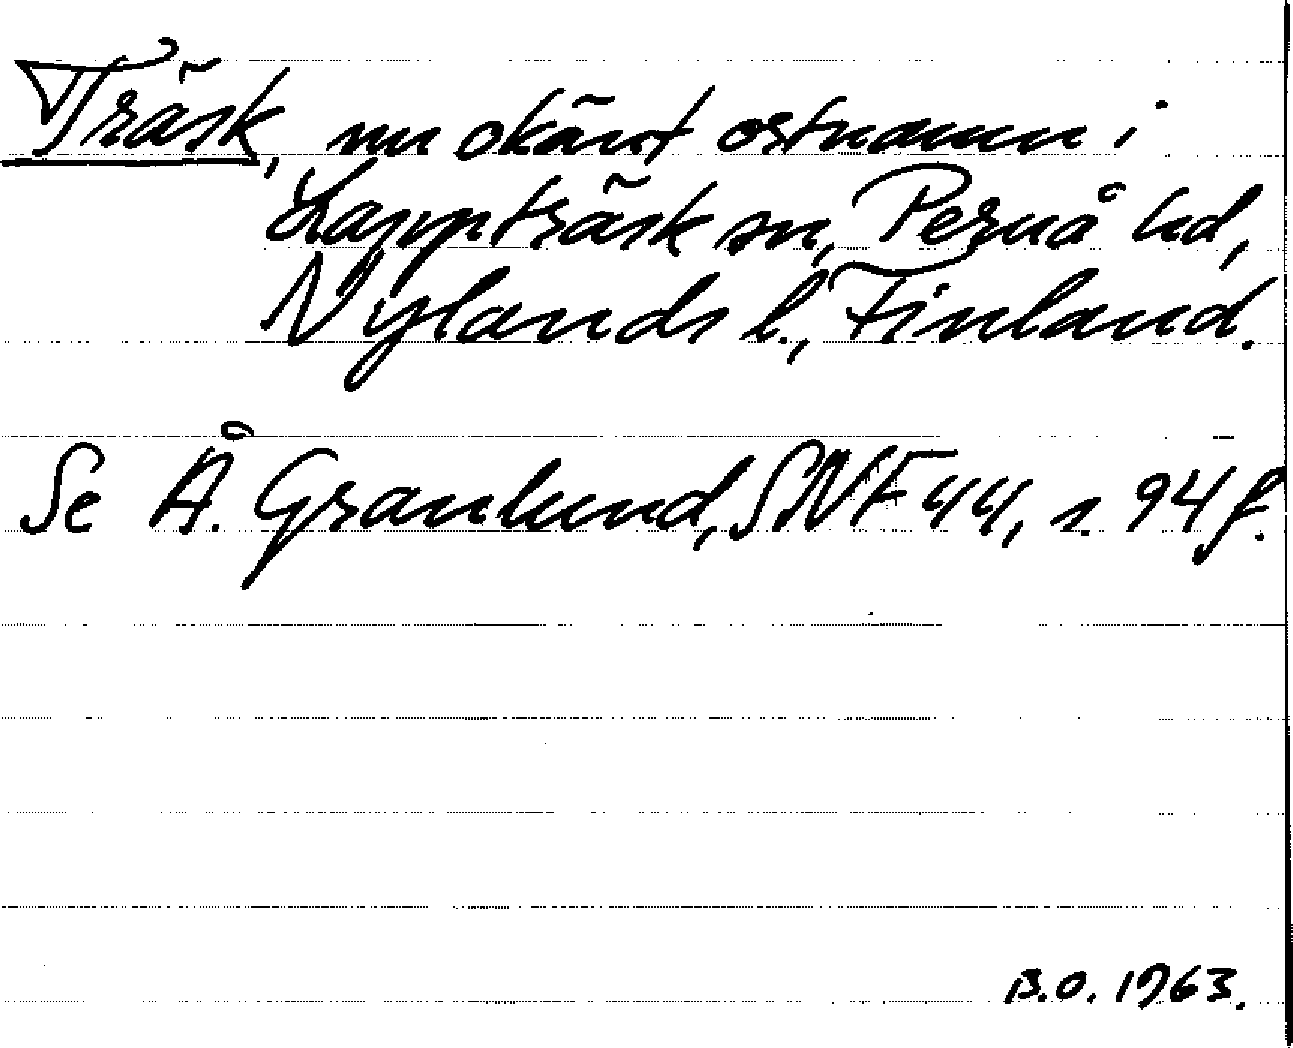 Träsk, nu okänt ortnamn i
Lappträsk sn, Pernå hd,
Nylands l., Finland.
Se Å. Granlund, SNF 44, s. 94 f.
B.O. 1963.